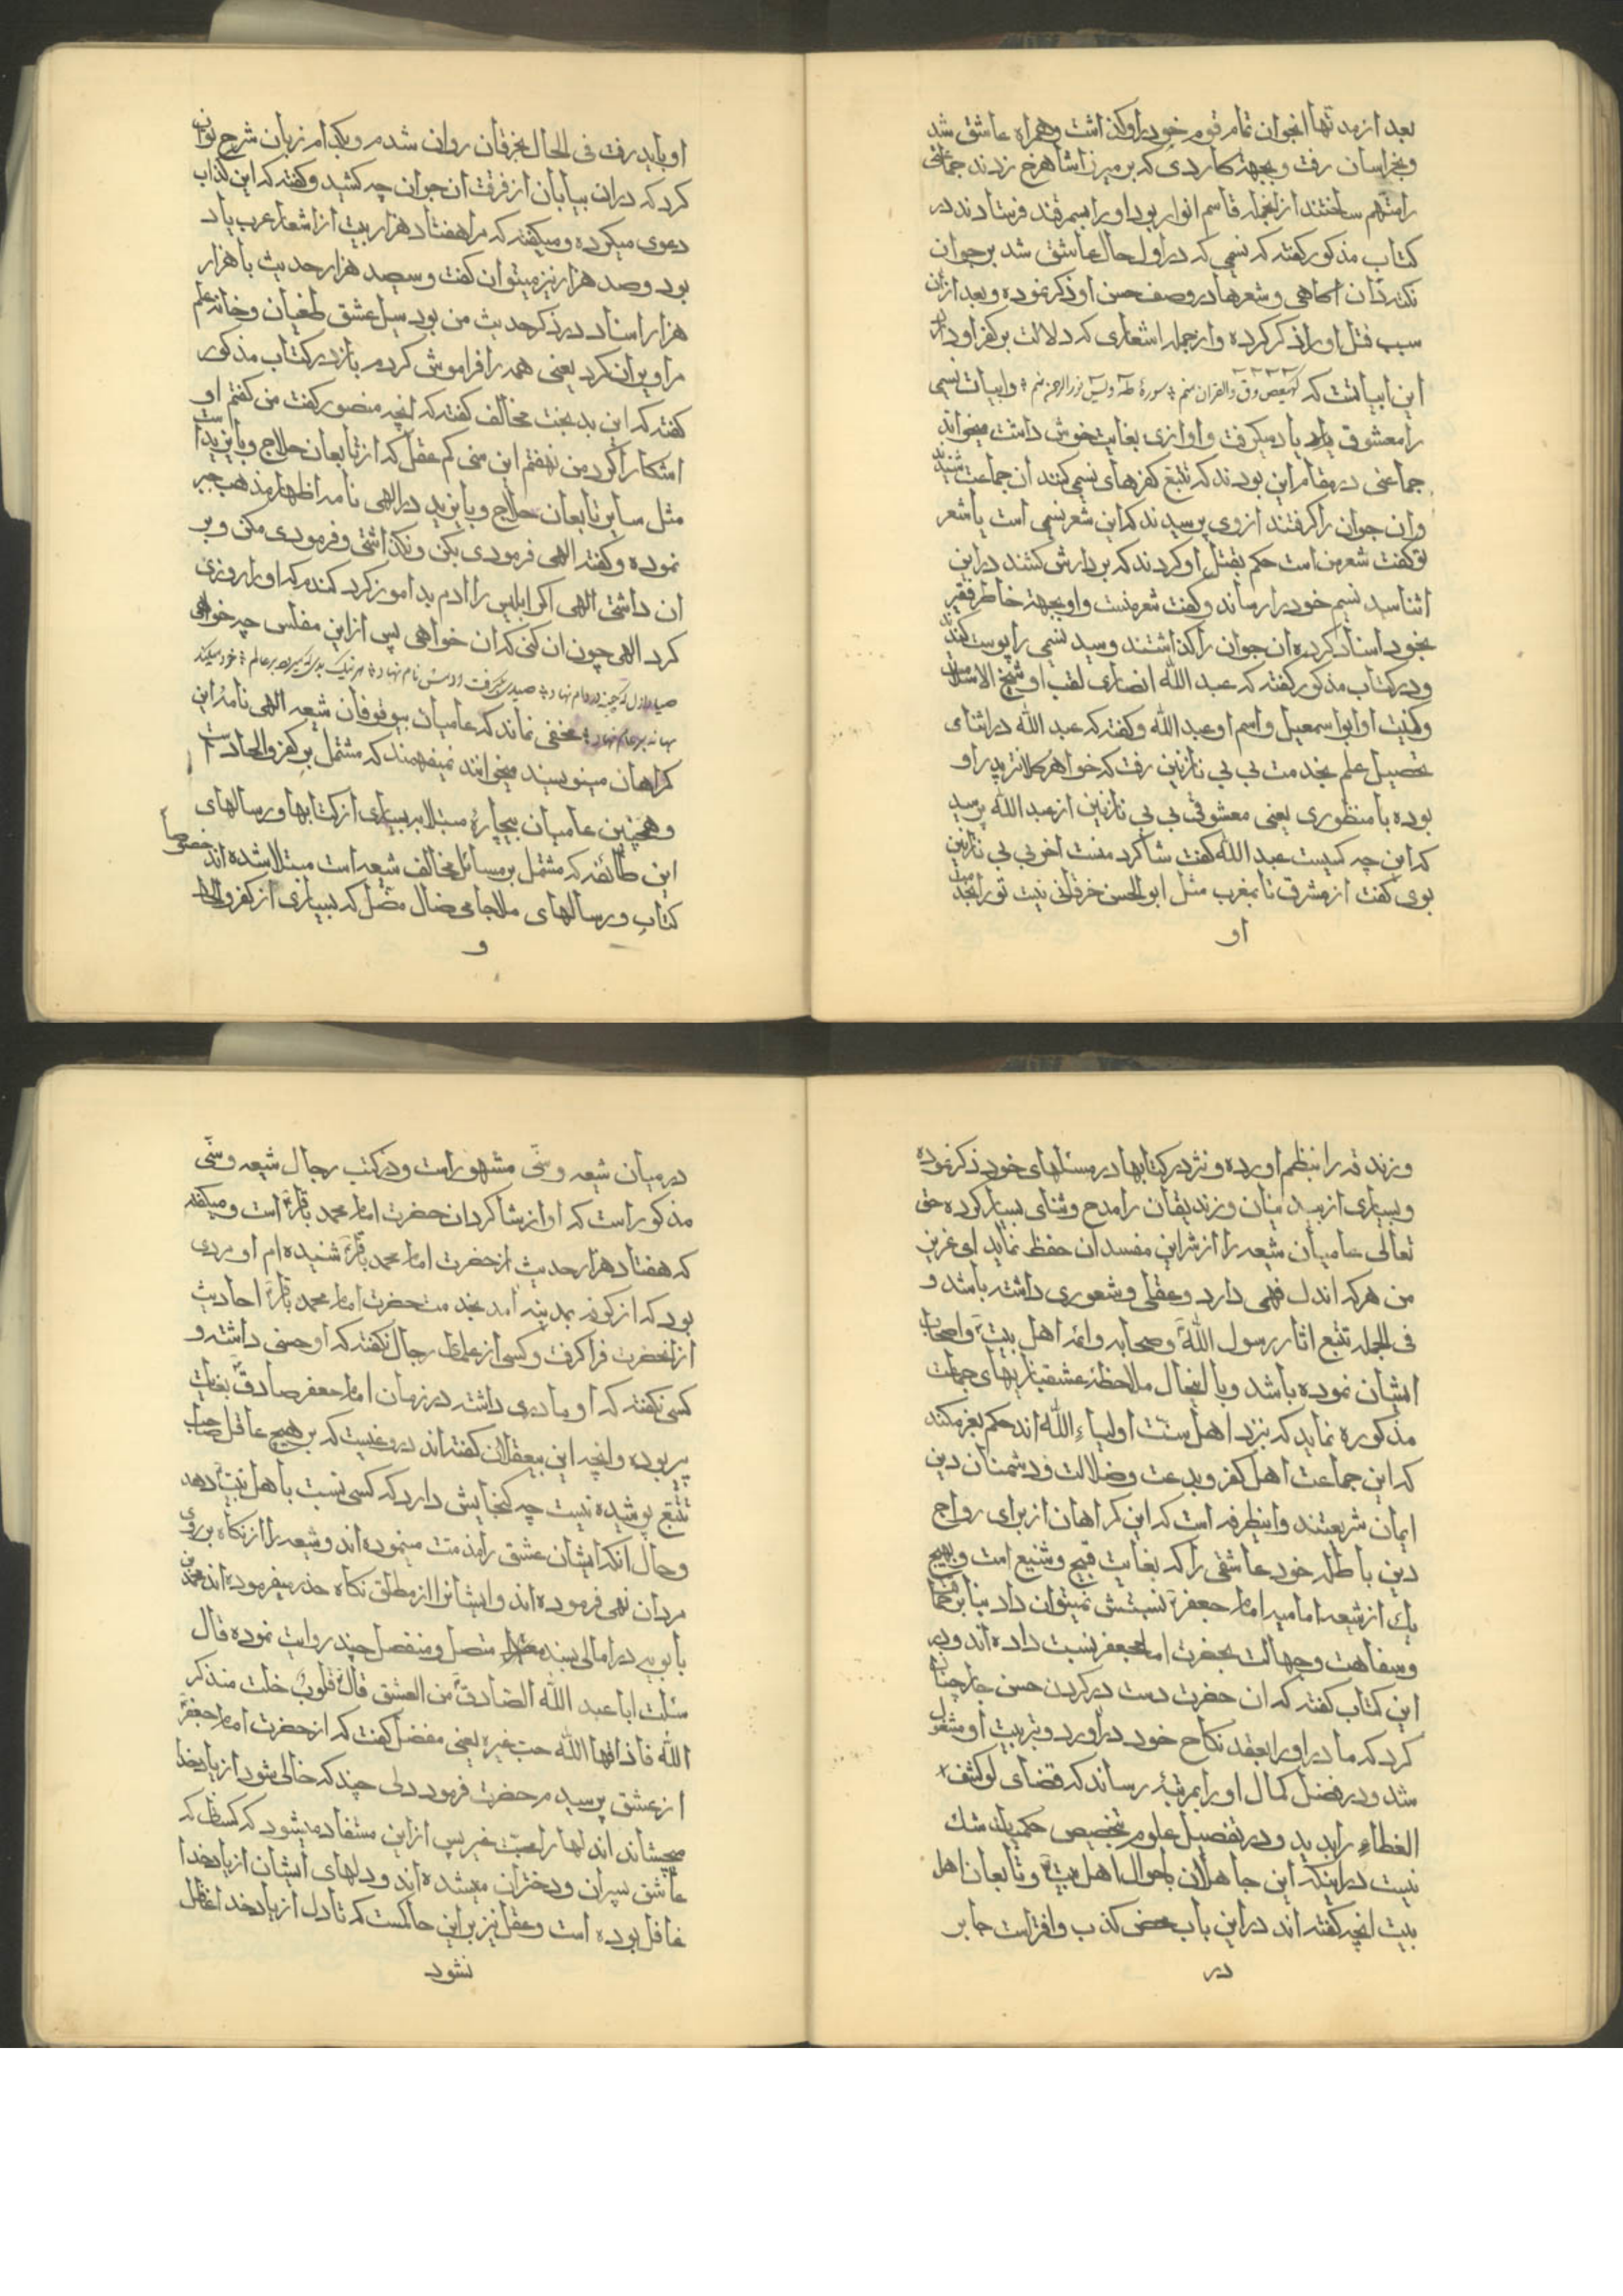 بعد از مدتها انجوان تمام قوم خود را وکذاشت و همراه عاشق شد
و بخراسان رفت و بجهة کاردی که بر میرزا شاهرخ زدند جماعتی
را متهم ساختند از انجمله قاسم انوار بود او را بسمرقند فرستادند در
کتاب مذکور کفته که نسیمی که در اول حال عاشق شد بر جوان
تکدردان اکاهی و شعرها در وصف حسن او ذکر نموده و بعد از ان
سبب قتل او را ذکر کرده و از جمله اشعاری که دلالت بر کفر او دارد
این ابیاتست که کهیعص و ق والقران منم سورهٔ طه و یس نور الرحمن منم و ابیات نسیمی
را معشوق یاد میکرفت و اوازی بغایت خوش داشت میخواند
جماعتی در مقام این بودند که تتبع کفرهای نسیمی کنند ان جماعت شنیدند
و ان جوان را کرفتند از وی پرسیدند که این شعر نسیمی است یا شعر
تو کفت شعر من است حکم بقتل او کردند که بر دارش کشند در این
اثنا سید نسیم خود را رساند و کفت شعر منست و او بجهة خاطر فقیر
بخود اسناد کرده ان جوان را کذاشتند و سید نسیمی را پوست کندند
و در کتاب مذکور کفته که عبد الله انصاری لقب او شیخ الاسلام است
و کنیت او ابو اسمعیل و اسم او عبد الله و کفته که عبد الله در اثنای
تحصیل علم بخدمت بی بی نازنین رفت که خواهر کلانتر پدر او
بوده با منظوری یعنی معشوقی بی بی نازنین از عبد الله پرسید
که این چه کسیست عبد الله کفت شاکرد منست اخر بی بی نازنین
بوی کفت از مشرق تا بمغرب مثل ابو الحسن خرقانی نیست تو را بخدمت
او
او باید رفت فی الحال بخرقان روان شدم و بکدام زبان شرح توان
کرد که در ان بیابان از فرقت ان جوان چه کشید و کفته که این کذاب
دعوی میکرده و میکفته که مرا هفتاد هزار بیت از اشعار عرب یاد
بود و صد هزار نیز میتوان کفت و سیصد هزار حدیث با هزار
هزار اسناد در ذکر حدیث من بود سیل عشق طغیان و خانه علم
مرا ویران کرد یعنی همه را فراموش کردم باز در کتاب مذکور
کفته که این بد بخت مخالف کفته که انچه منصور کفت من کفتم او
اشکارا کرد من نهفتم این سنی کم عقل که از تابعان حلاج و بایزید است
مثل سایر تابعان حلاج و بایزید در الهی نامه اظهار مذهب جبر
نموده و کفته الهی فرمودی بکن و نکذاشتی و فرمودی مکن و بر
ان داشتی الهی اکر ابلیس را ادم بد اموز کرد کندم که او را روزی
کرد الهی چون ان کنی که ان خواهی پس از این مفلس چه خواهی
صیاد ازل که چینه در دام نهاد صیدی بکرفت و ادمش نام نهاد هر نیک و بدی که میرود در عالم خود میکند
بهانه بر عام نهاد مخفی نماند که عامیان بیوقوفان شیعه الهی نامه این
کمراهان مینویسند میخوانند نمیفهمند که مشتمل بر کفر و الحاد است
و همچنین عامیان بیچاره مبتلا بر بسیاری از کتابها و رسالهای
این طائفه که مشتمل بر مسائل مخالف شیعه است مبتلا شده اند خصوصاً
کتاب و رسالهای ملا جامی ضال مضل که بسیاری از کفر و الحاد
و
و زندقه را بنظم اورده و نثر در کتابها در مسئلهای خود ذکر نموده
و بسیاری از بیدینان و زندیقان را مدح و ثنای بسیار کرده حق
تعالی عامیان شیعه را از شر این مفسدان حفظ نماید ای عزیز
من هر که اندک فهمی دارد و عقلی و شعوری داشته باشد و
فی الجمله تتبع اثار رسول الله و صحابه و ائمه اهل بیت و اصحاب
ایشان نموده باشد و با اینحال ملاحظهٔ عشقبازیهای جماعت
مذکوره نماید که نزد اهل سنت اولیاء الله اند حکم بغیر مکند
که این جماعت اهل کفر و بدعت و ضلالت و دشمنان دین
ایمان شریعتند و اینطرفه است که این کمراهان از برای رواج
دین باطله خود عاشقی را که بغایت قبیح و شنیع است و بهیچ
یک از شیعه امامیه امام جعفر نسبتش نمیتوان داد بنا بر حماقت
و سفاهت و جهالت بحضرت امام جعفر نسبت داده اند و در
این کتاب کفته که ان حضرت دست در کردن حسن جابر چنان
کرد که مادر او را بعقد نکاح خود در اورد و تربیت او مشغول
شد و در فضل کمال او را بمرتبهٔ رساند که قضای لو کشف
الغطاء را بدید و در تفصیل علوم تخصیص حکمیات شک
نیست در اینکه این جاهلان باحوال اهل بیت و تابعان اهل
بیت انچه کفته اند در این باب محض کذب و افتراست جابر
در
در میان شیعه و سنّی مشهور است و در کتب رجال شیعه و سنّی
مذکور است که او از شاکردان حضرت امام محمد باقر است و میکفته
که هفتاد هزار حدیث از حضرت امام محمد باقر شنیده ام او مردی
بود که از کوفه بمدینه امد بخدمت حضرت امام محمد باقر احادیث
از انحضرت فرا کرفت و کسی از علمای رجال نکفته که او حسنی داشته و
کسی نکفته که او مادری داشته در زمان امام جعفر صادق بغایت
پیر بوده و انچه این بیعقلان کفته اند دروغیست که بر هیچ عاقل صاحب
تتبع پوشیده نیست چه کنجایش دارد که کسی نسبت باهل بیت دهد
و حال انکه ایشان عشق را مذمت مینموده اند و شیعه را از نکاه بروی
مردان نهی فرموده اند و ایشانرا از مطلق نکاه حذر میفرموده اند محمد بن
بابویه در امالی بسند متصل و منفصل چند روایت نموده قال
سئلت ابا عبد الله الصادق من العشق قال قلوب خلت من ذکر
الله فاذاقها الله حب غیره یعنی مفضل کفت که از حضرت امام جعفر
از عشق پرسیدم حضرت فرمود دلی چند که خالی شود از یاد خدا
میچشاند اندلها را محبت غیر پس از این مستفاد میشود که کسانی که
عاشق پسران و دختران میشده اند و دلهای ایشان از یاد خدا
غافل بوده است و عقل نیز بر این حاکمست که تا دل از یاد خدا غافل
نشود